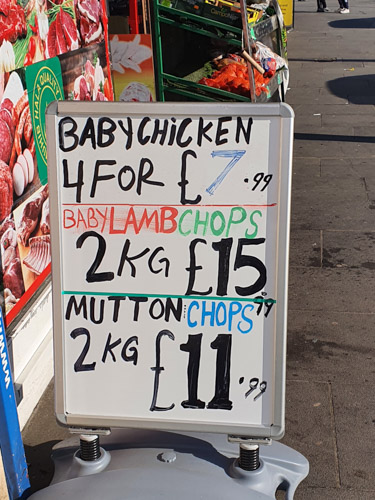 BABYCHICKEN
4 FOR £7.99
BABY LAMB CHOPS
2KG £15.99
MUTTON CHOPS
2KG £11.99